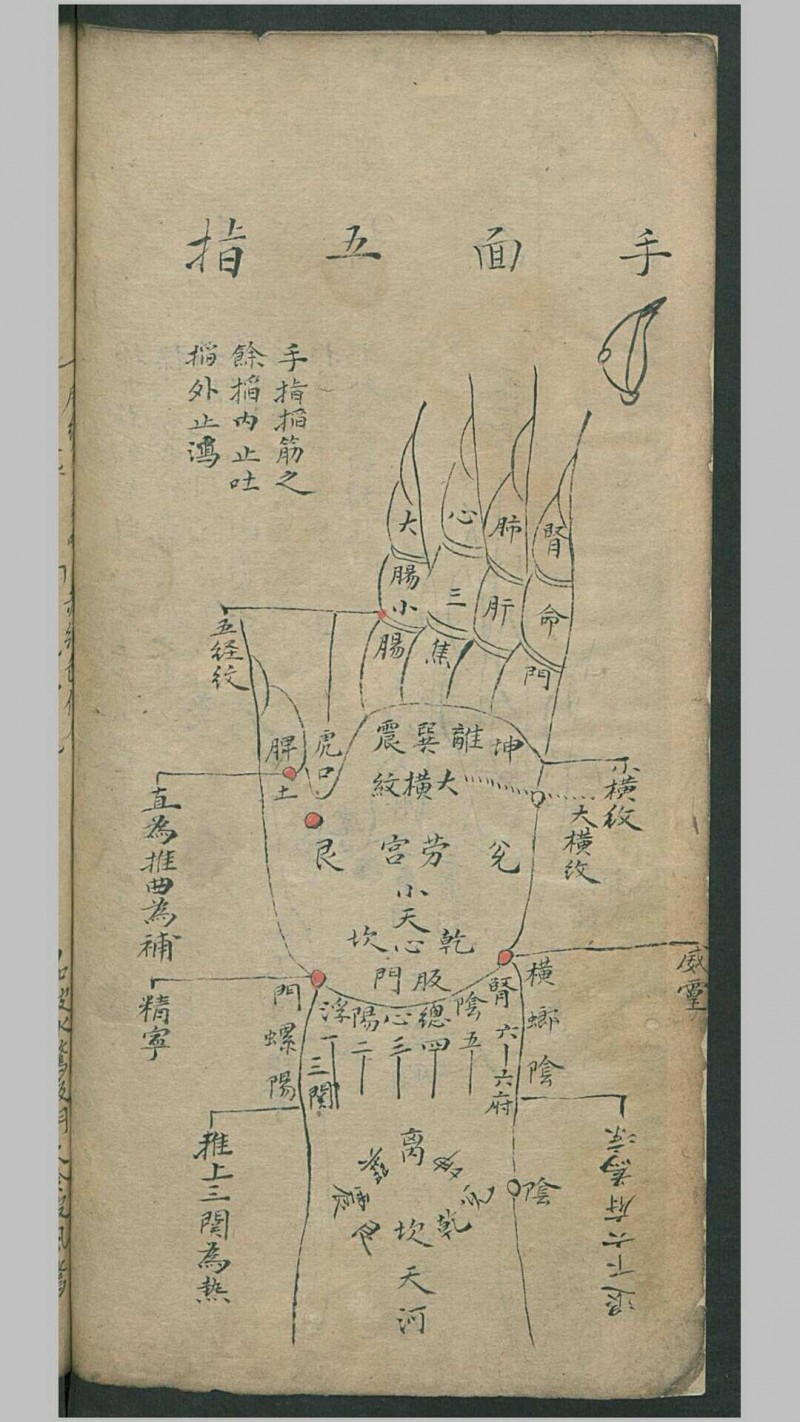 手面五指
手指掐筋之
餘掐内止吐
掐外止瀉
腎命門
肺肝
心三焦
大腸小腸
五経紋
脾土
虎口
震巽離坤
大横紋
小横紋
大横紋
艮
劳宮
兊
小天心
乾
坎
直為推曲為補
威靈
精寧
門螺陽
横螂陰
腎六六府
陰五
總四
心三
陽二
浮一
三関
推上三関為热
退下六府為凉
离
乾
坎
陰
天河